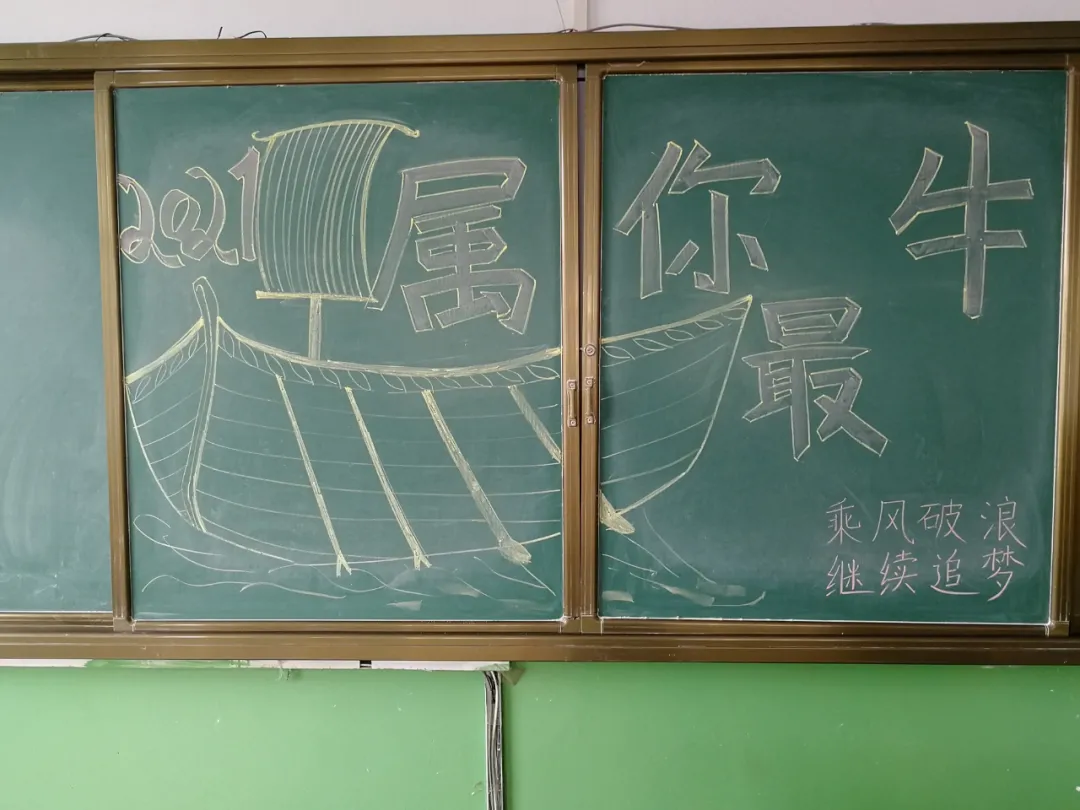 2021 属你最牛
乘风破浪
继续追梦